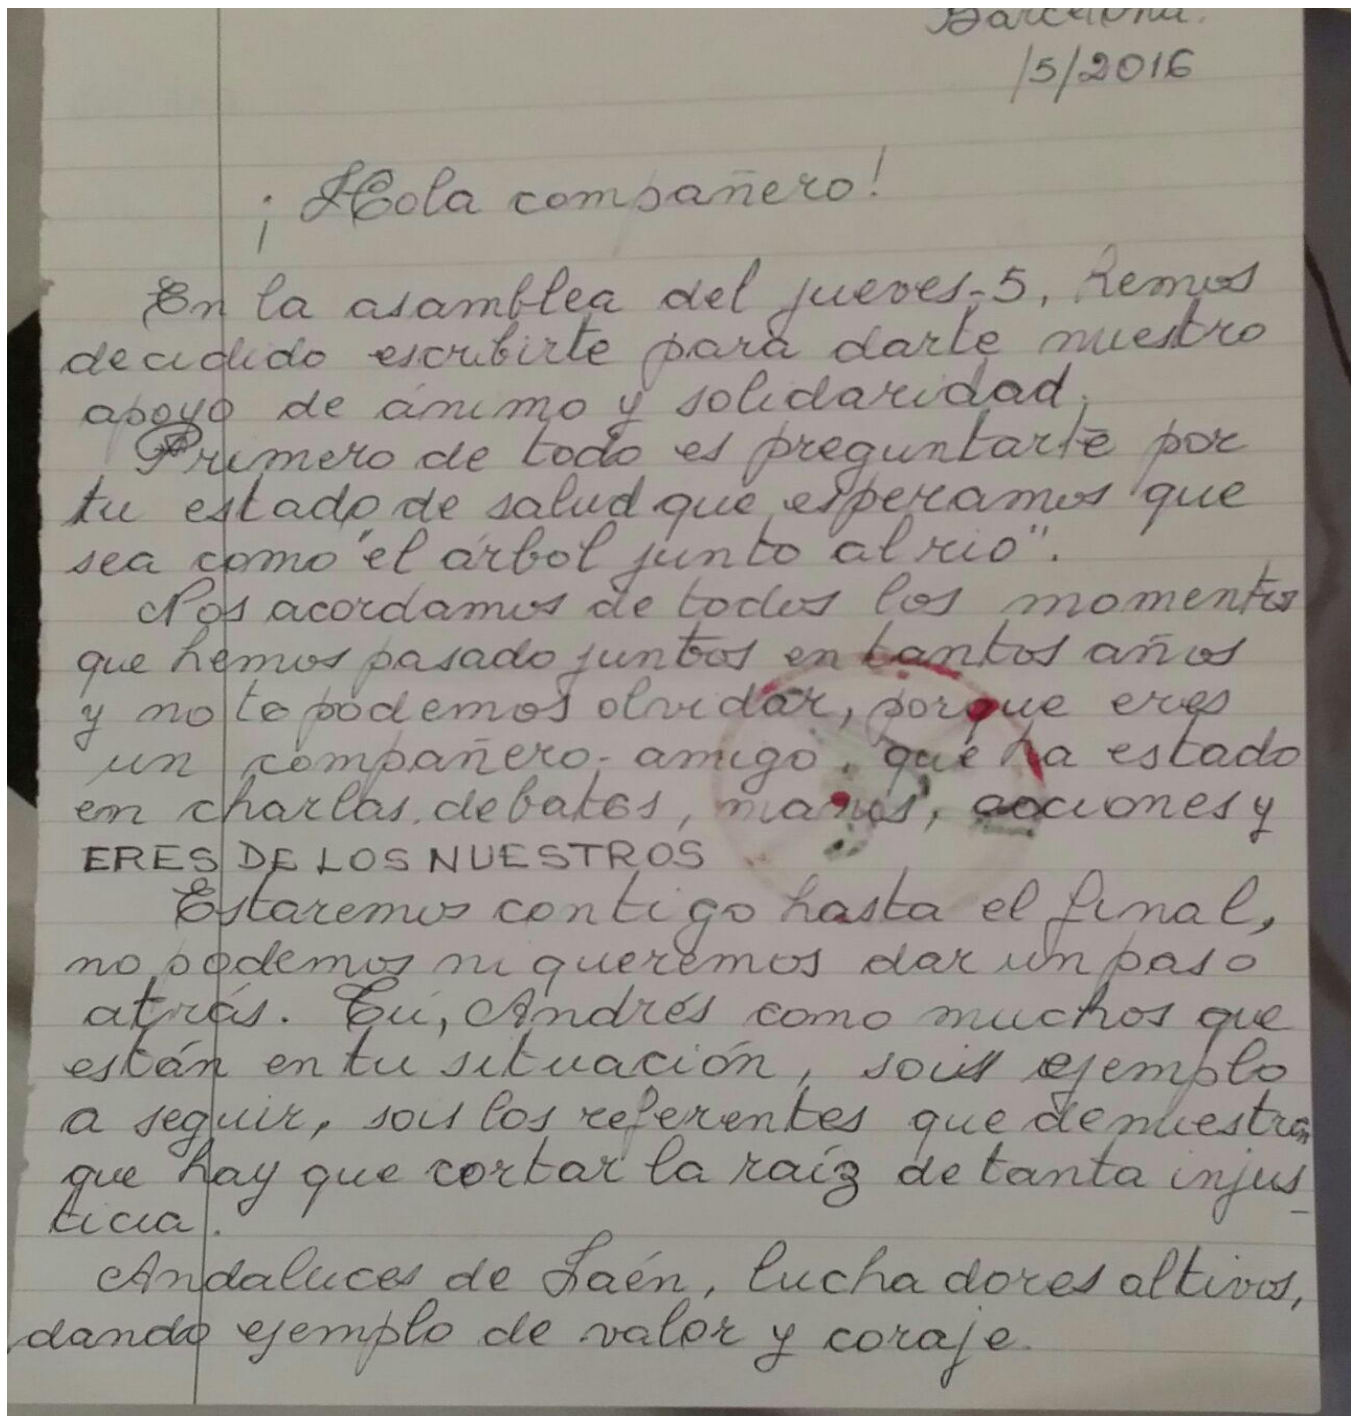 Barcelona.
/5/2016
¡Hola compañero!
En la asamblea del jueves-5, hemos
decidido escribirte para darte nuestro
apoyo de ánimo y solidaridad.
Primero de todo es preguntarte por
tu estado de salud que esperamos que
sea como "el árbol junto al rio".
Nos acordamos de todos los momentos
que hemos pasado juntos en tantos años
y no te podemos olvidar, porque eres
un compañero-amigo, que ha estado
en charlas, debates, manos, acciones y
ERES DE LOS NUESTROS
Estaremos contigo hasta el final,
no podemos ni queremos dar un paso
atrás. Tú, Andrés como muchos que
están en tu situación, sois ejemplo
a seguir, sois los referentes que demuestran
que hay que cortar la raíz de tanta injus_
ticia.
Andaluces de Jaén, luchadores altivos,
dando ejemplo de valor y coraje.